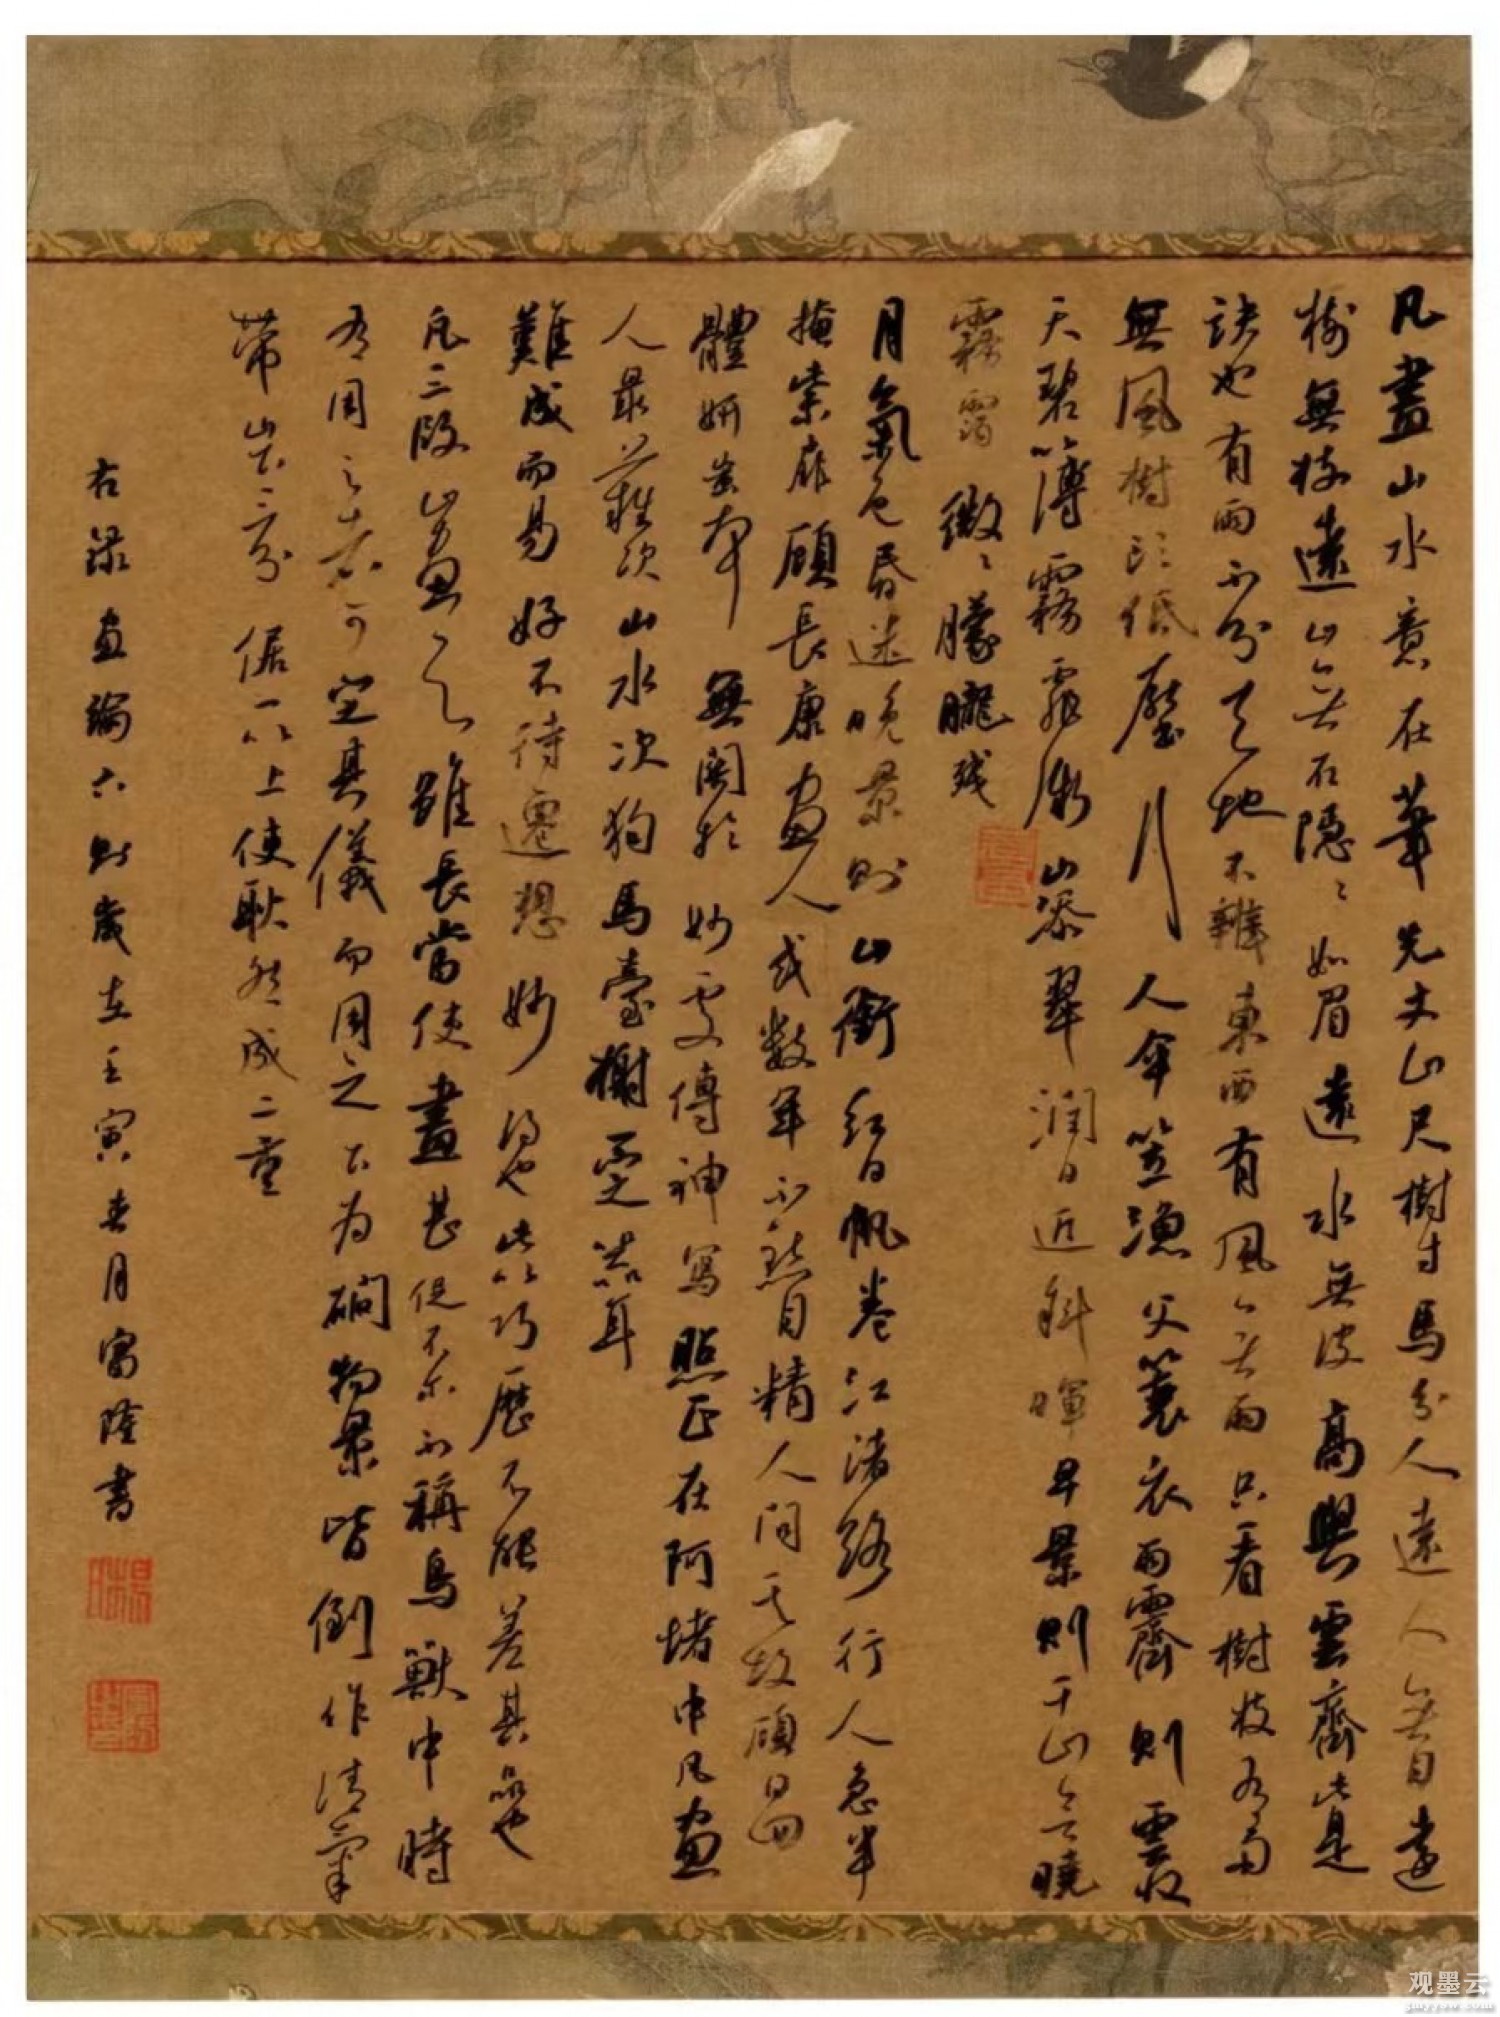 凡畫山水意在筆先丈山尺樹寸馬分人遠人無目遠
樹無枝遠山無石隱〻如眉遠水無波高與雲齊此是
訣也有雨不分天地不辨東西有風無雨只看樹枝有雨
無風樹頭低壓行人傘笠漁父蓑衣雨霽則雲收
天碧薄霧霏微山添翠潤日近斜暉早景則千山欲曉
霧靄微〻朦朧殘
月氣色昏迷晚景則山銜紅日帆卷江渚路行人急半
掩柴扉顧長康畫人或數年不點目精人問其故顧曰四
體妍蚩本無關於妙處傳神寫照正在阿堵中凡畫
人最難次山水次狗馬臺榭一定器耳
難成而易好不待遷想妙得也此以巧歷不能差其品也
凡三段山畫之雖長當使畫甚促不爾不稱鳥獸中時
有用之者不可定其儀而用之下為磵物景皆倒作清氣
帶山下三分倨一以上使耿然成二重
右錄畫論六則歲在壬寅春月富隆書
观墨云
gmyyow.com